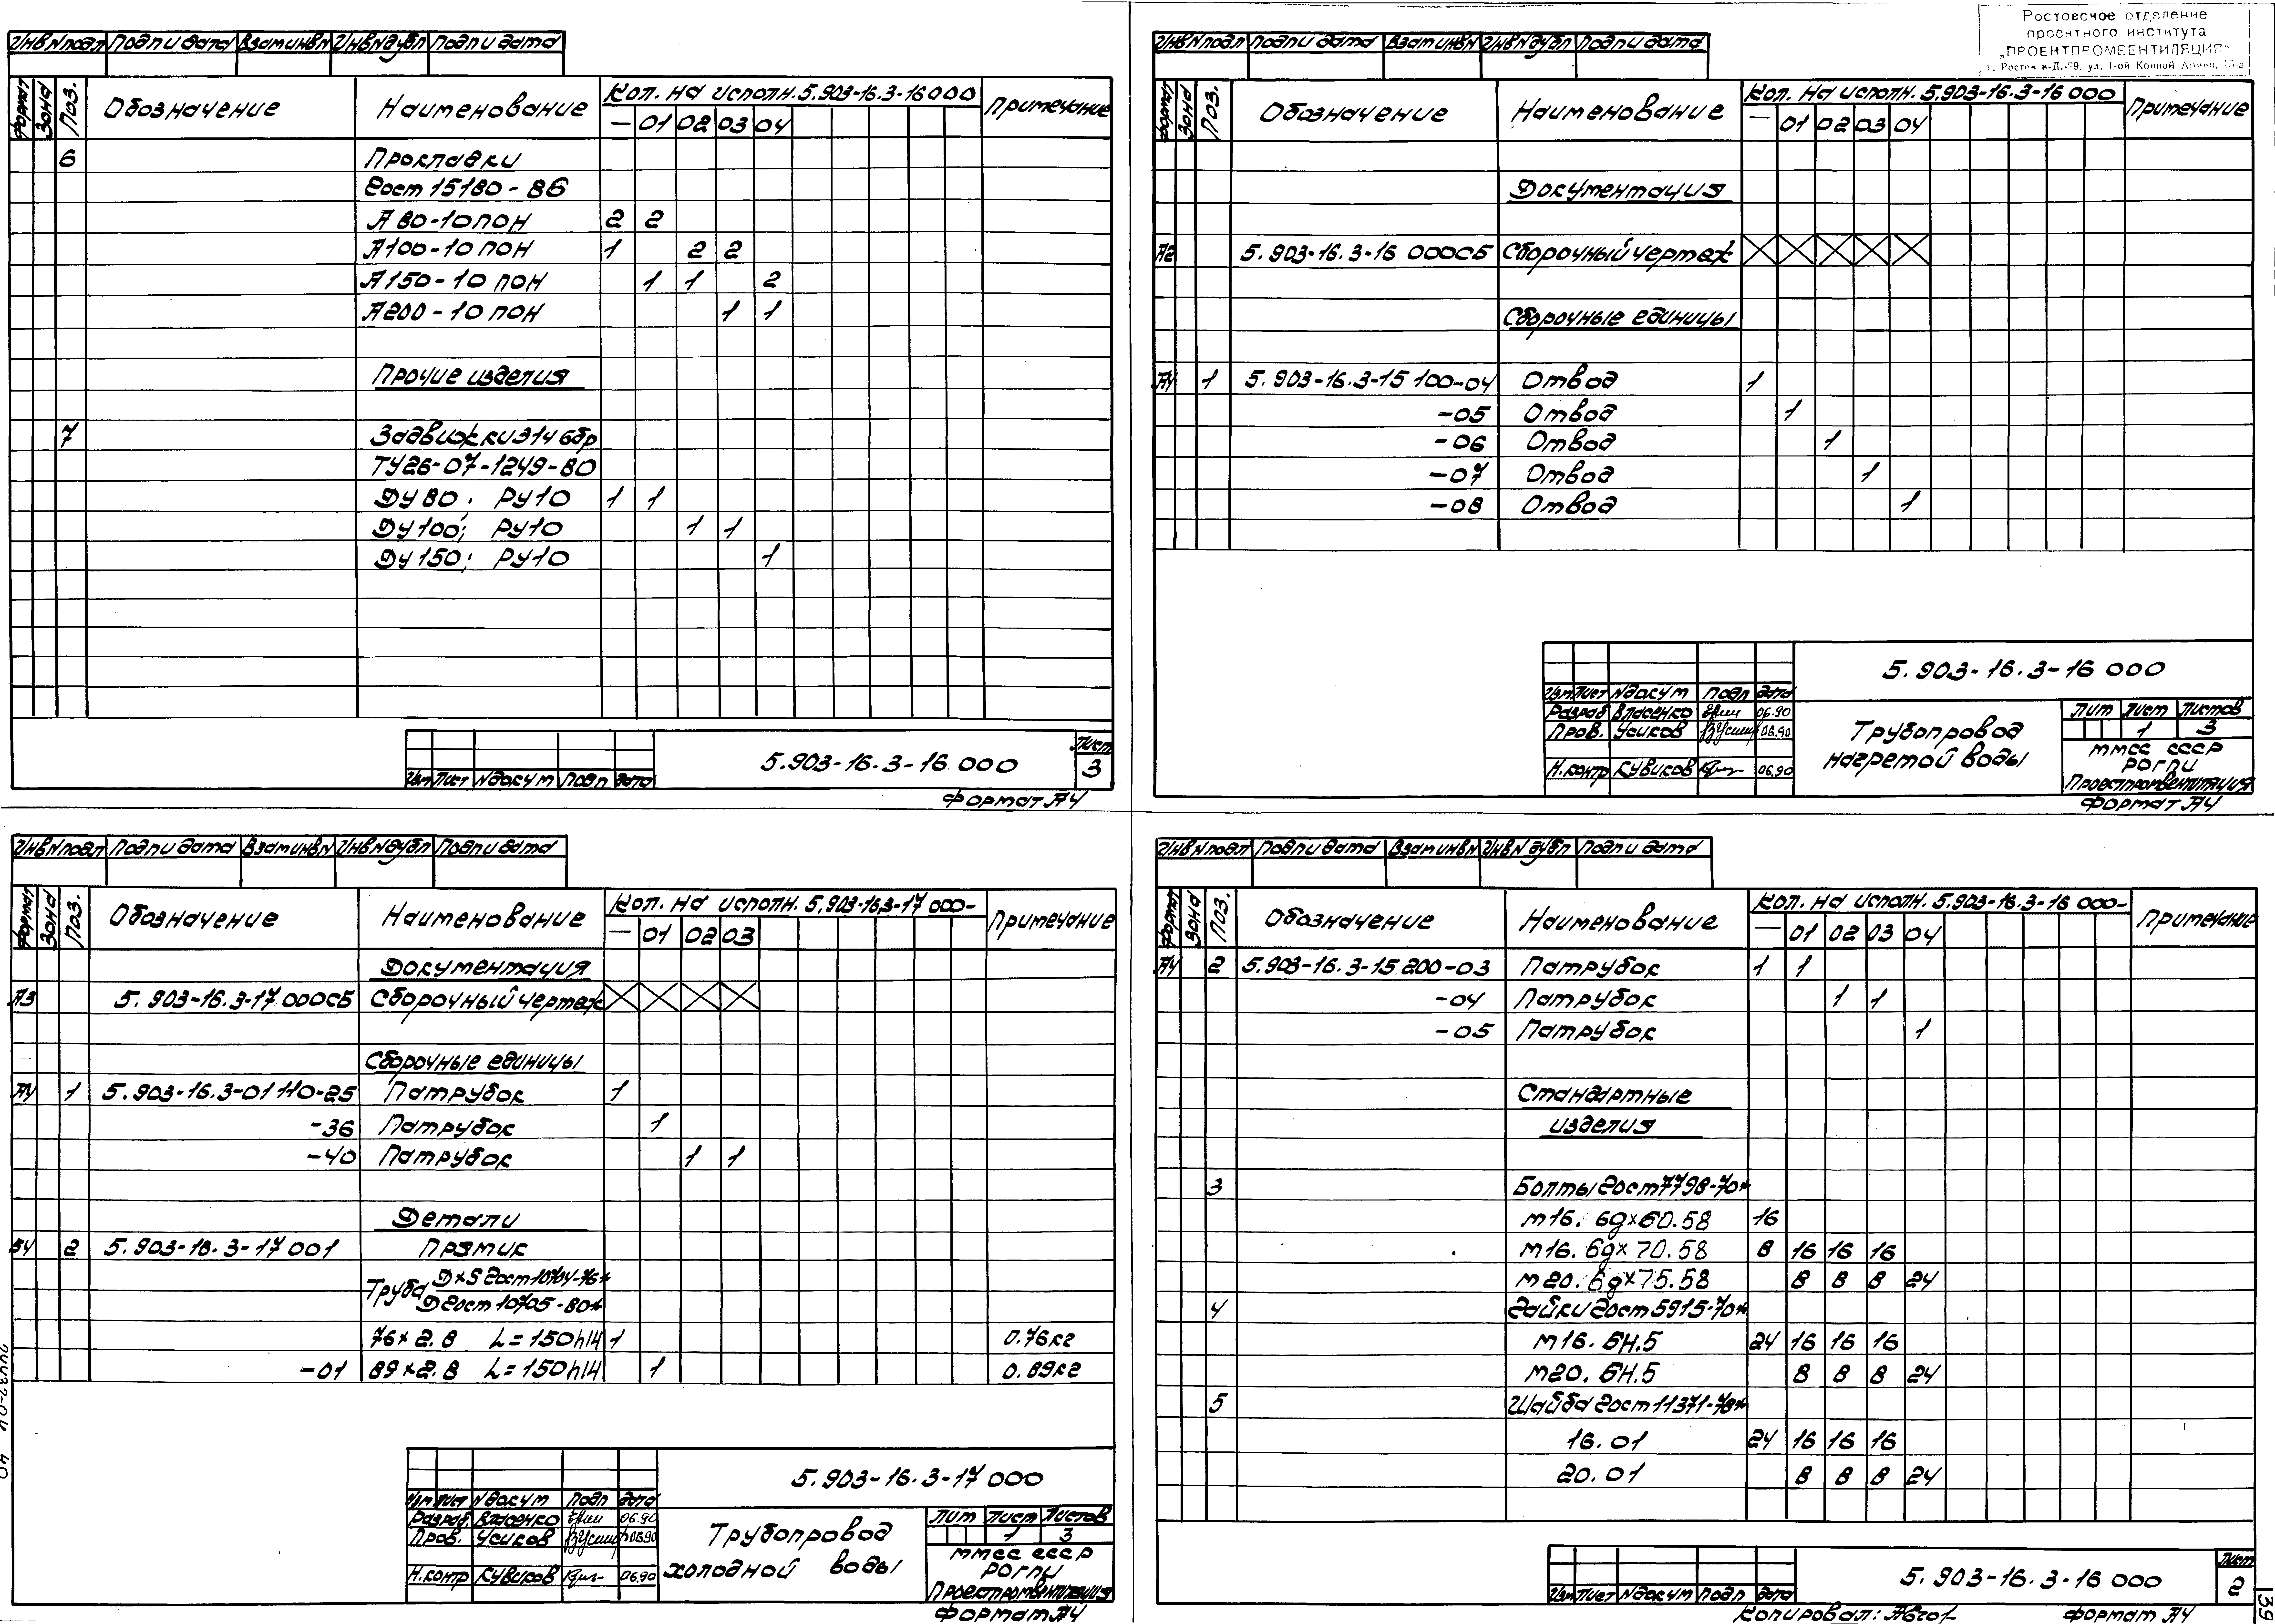 Инв№подл Подп и дата Взам инв№ Инв№дубл Подп и дата
Формат Зона Поз. Обозначение Наименование Кол. на исполн. 5.903-16.3-16000 Примечание
— 01 02 03 04
6 Прокладки
Гост 15180-86
А 80-10 ПОН 2 2
А100-10 ПОН 1 2 2
А150-10 ПОН 1 1 2
А200-10 ПОН 1 1
Прочие изделия
7 Задвижки 31ч6бр
ТУ26-07-1249-80
Ду 80; Ру10 1 1
Ду 100; Ру10 1 1
Ду 150; Ру10 1
Изм Лист №докум Подп Дата
5.903-16.3-16 000
Лист
3
Формат А4
Ростовское отделение
проектного института
„ПРОЕКТПРОМВЕНТИЛЯЦИЯ“
г. Ростов н-Д.-29, ул. 1-ой Конной Армии,
Инв№подл Подп и дата Взам инв№ Инв№дубл Подп и дата
Формат Зона Поз. Обозначение Наименование Кол. на исполн. 5.903-16.3-16 000 Примечание
— 01 02 03 04
Документация
А2 5.903-16.3-16 000СБ Сборочный чертеж
Сборочные единицы
А4 1 5.903-16.3-15 100-04 Отвод 1
-05 Отвод 1
-06 Отвод 1
-07 Отвод 1
-08 Отвод 1
5.903-16.3-16 000
Изм Лист №докум Подп Дата
Разраб Власенко 06.90
Пров. Усиков 06.90
Н.контр Кувиков 06.90
Трубопровод
нагретой воды
Лит Лист Листов
1 3
ММСС СССР
РОГПИ
Проектпромвентиляция
Формат А4
Инв№подл Подп и дата Взам инв№ Инв№дубл Подп и дата
Формат Зона Поз. Обозначение Наименование Кол. на исполн. 5.903-16.3-17 000- Примечание
— 01 02 03
Документация
А3 5.903-16.3-17 000СБ Сборочный чертеж
Сборочные единицы
А4 1 5.903-16.3-01 110-25 Патрубок 1
-36 Патрубок 1
-40 Патрубок 1 1
Детали
БЧ 2 5.903-16.3-17 001 Прямик
Труба D×S Гост 10704-76*
Д Гост 10705-80*
76×2.8 L=150h14 1 0.76кг
-01 89×2.8 L=150h14 1 0.89кг
5.903-16.3-17 000
Изм Лист №докум Подп Дата
Разраб. Власенко 06.90
Пров. Усиков 06.90
Н.контр Кувиков 06.90
Трубопровод
холодной воды
Лит Лист Листов
1 3
ММСС СССР
РОГПИ
Проектпромвентиляция
Формат А4
Инв№подл Подп и дата Взам инв№ Инв№дубл Подп и дата
Формат Зона Поз. Обозначение Наименование Кол. на исполн. 5.903-16.3-16 000- Примечание
— 01 02 03 04
А4 2 5.903-16.3-15.200-03 Патрубок 1 1
-04 Патрубок 1 1
-05 Патрубок 1
Стандартные
изделия
3 Болты Гост 7798-70*
М16. 6g×60.58 16
М16. 6g×70.58 8 16 16 16
М20. 6g×75.58 8 8 8 24
4 Гайки Гост 5915-70*
М16. 6Н.5 24 16 16 16
М20. 6Н.5 8 8 8 24
5 Шайба Гост 11371-78*
16.01 24 16 16 16
20.01 8 8 8 24
Изм Лист №докум Подп Дата
5.903-16.3-16 000
Лист
2
Копировал:
Формат А4
139